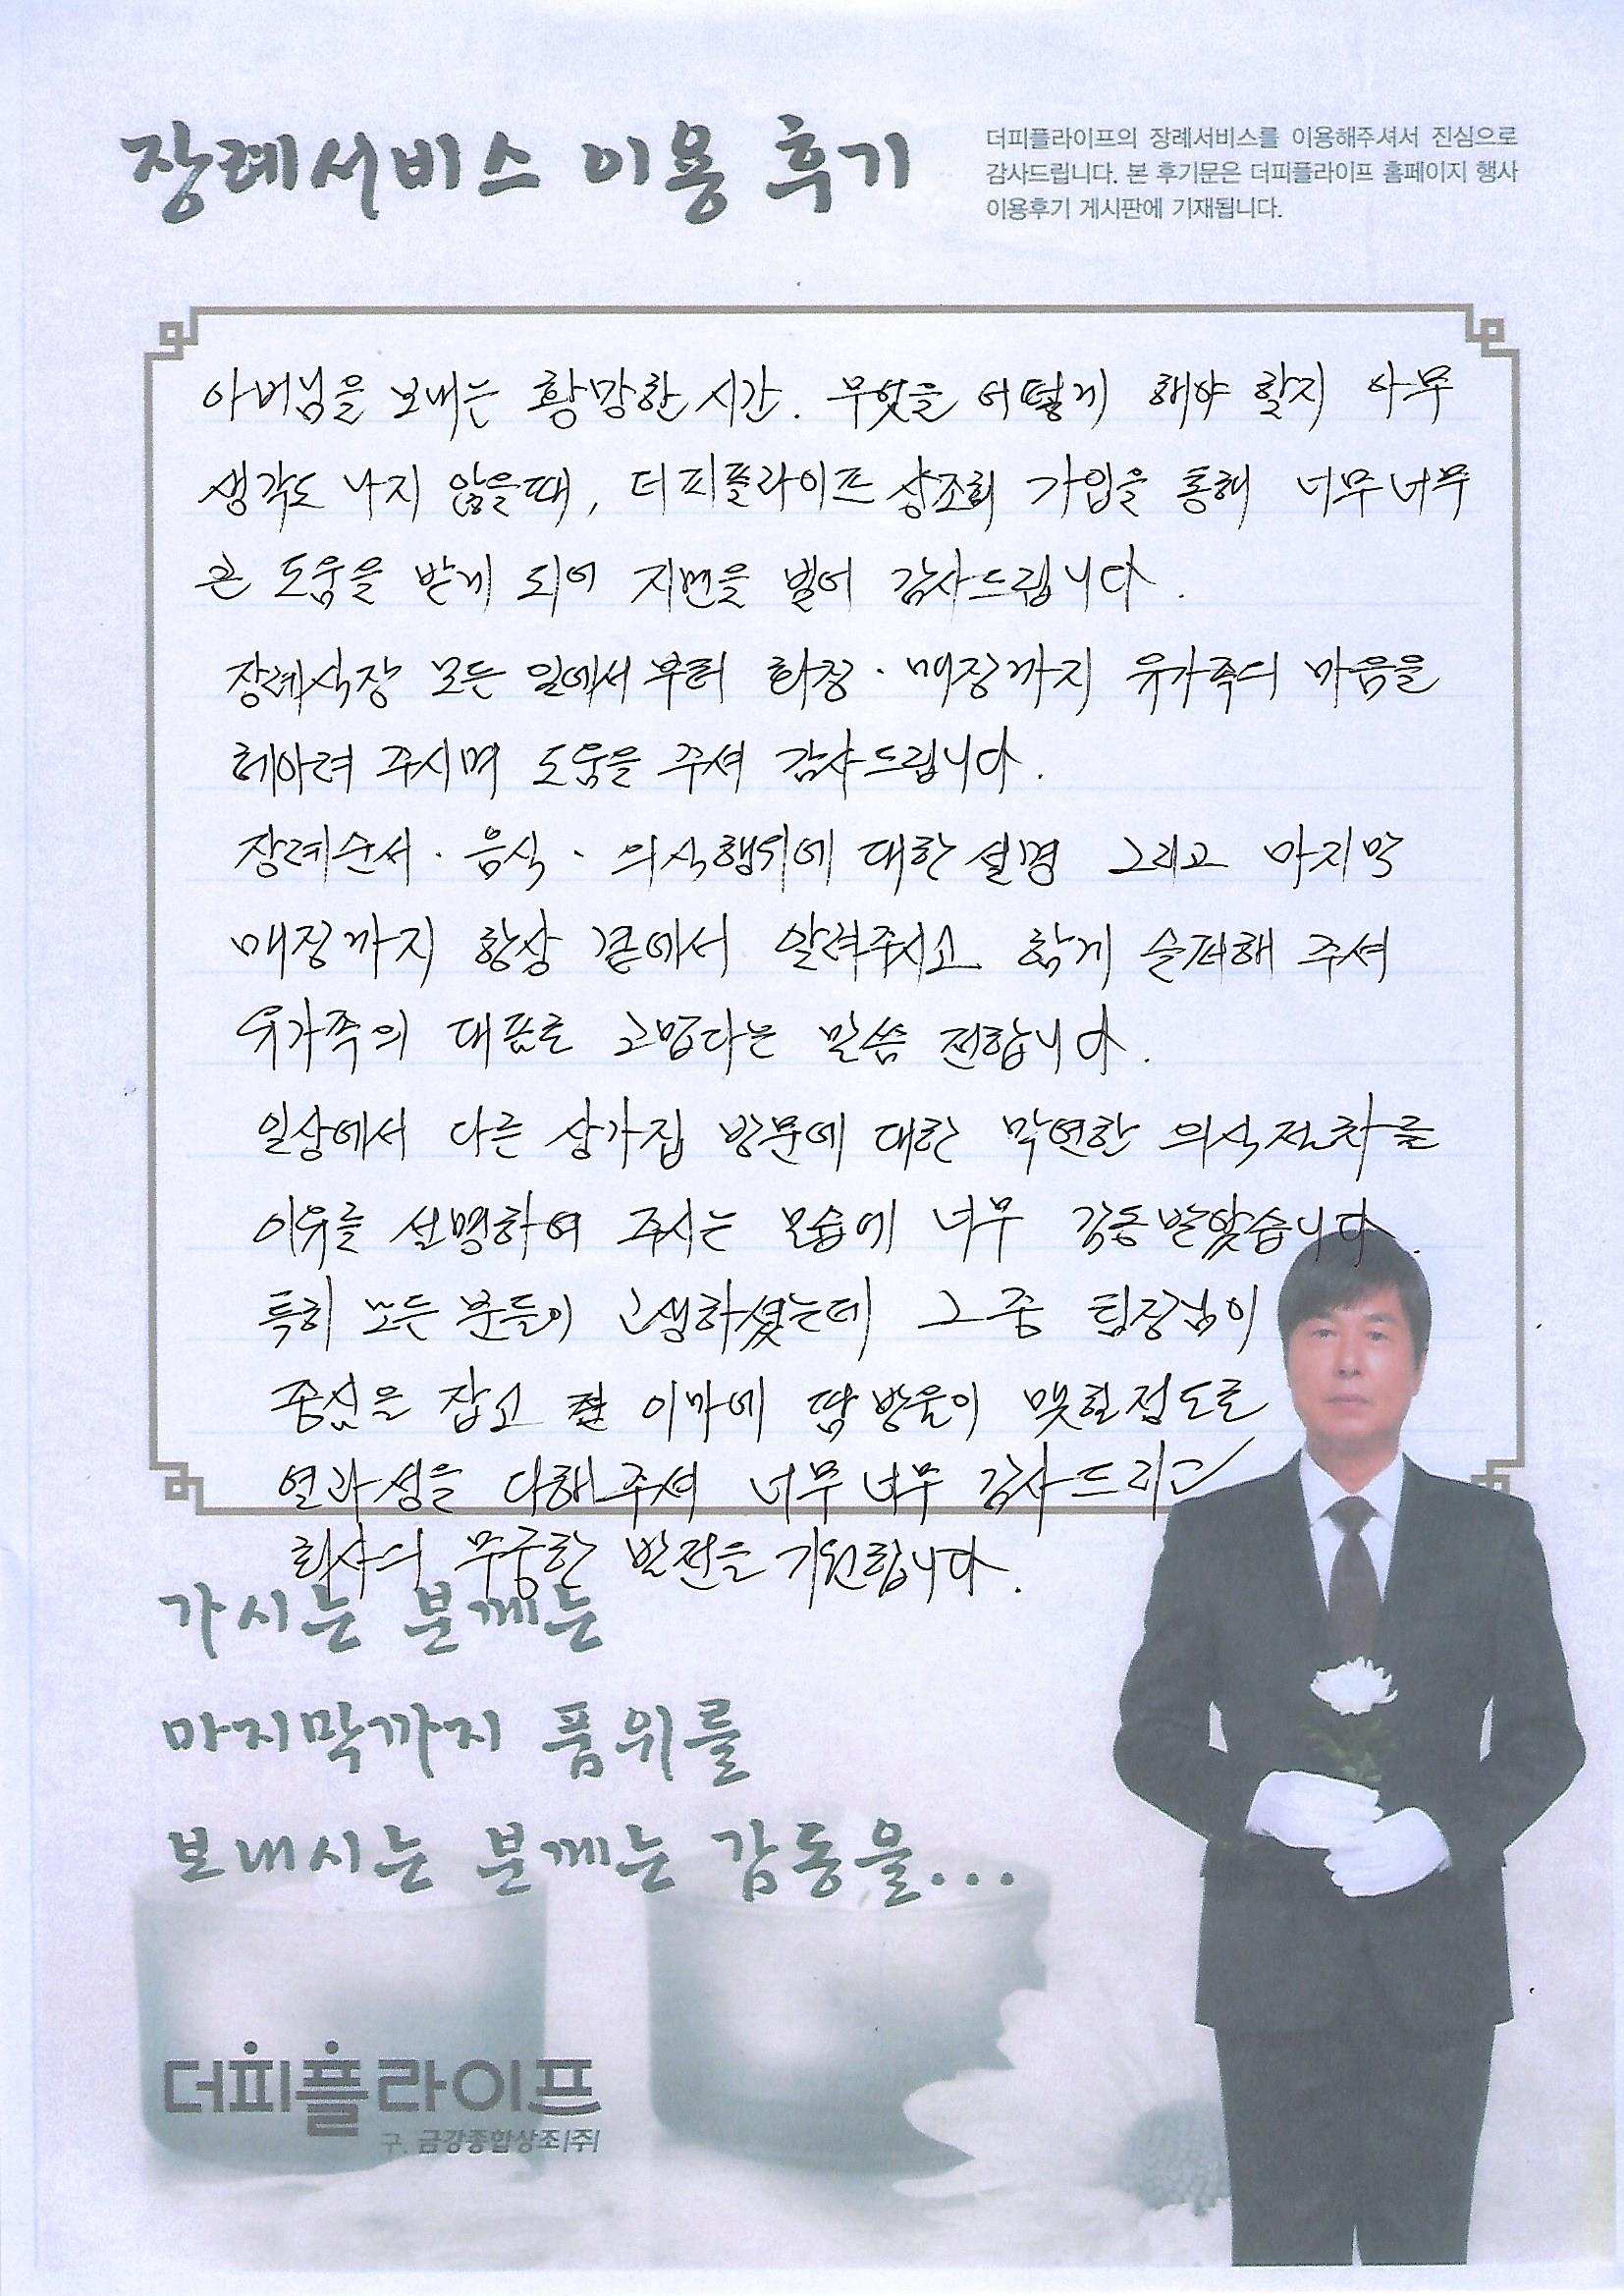 장례서비스 이용 후기
더피플라이프의 장례서비스를 이용해주셔서 진심으로
감사드립니다. 본 후기문은 더피플라이프 홈페이지 행사
이용후기 게시판에 기재됩니다.
아버님을 보내는 황망한 시간. 무엇을 어떻게 해야 할지 아무
생각도 나지 않을때, 더피플라이프 상조회 가입을 통해 너무너무
큰 도움을 받게 되어 지면을 빌어 감사드립니다.
장례식장 모든 일에서부터 화장·매장까지 유가족의 마음을
헤아려 주시며 도움을 주셔 감사드립니다.
장례순서·음식·의식행위에 대한 설명 그리고 마지막
매장까지 항상 곁에서 알려주시고 함께 슬퍼해 주셔
유가족의 대표로 고맙다는 말씀 전합니다.
일상에서 다른 상가집 방문에 대한 막연한 의식절차를
이유를 설명하여 주시는 모습에 너무 감동받았습니다.
특히 모든 분들이 고생하셨는데 그 중 팀장님이
중심을 잡고 이마에 땀방울이 맺힐정도로
열과성을 다해주셔 너무너무 감사드리고
회사의 무궁한 발전을 기원합니다.
가시는 분께는
마지막까지 품위를
보내시는 분께는 감동을...
더피플라이프
구. 금강종합상조(주)